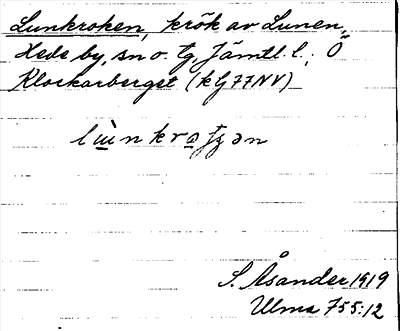 Lunkroken, krök av Lunen,
Hede by, sn o. tg, Jämtl. l., Ö
Klockarberget (kG77NV)
S. Åsander 1919
Ulma 755:12